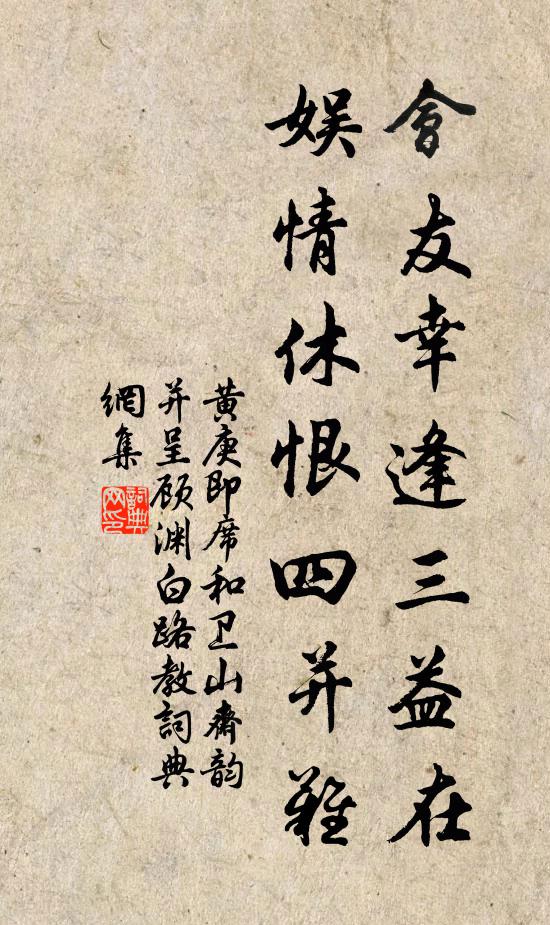 會友幸逢三益在
娯情休恨四并難
黃庚即席和卫山齋韵
并呈顾渊白路教詞典
網集
詞典
网印